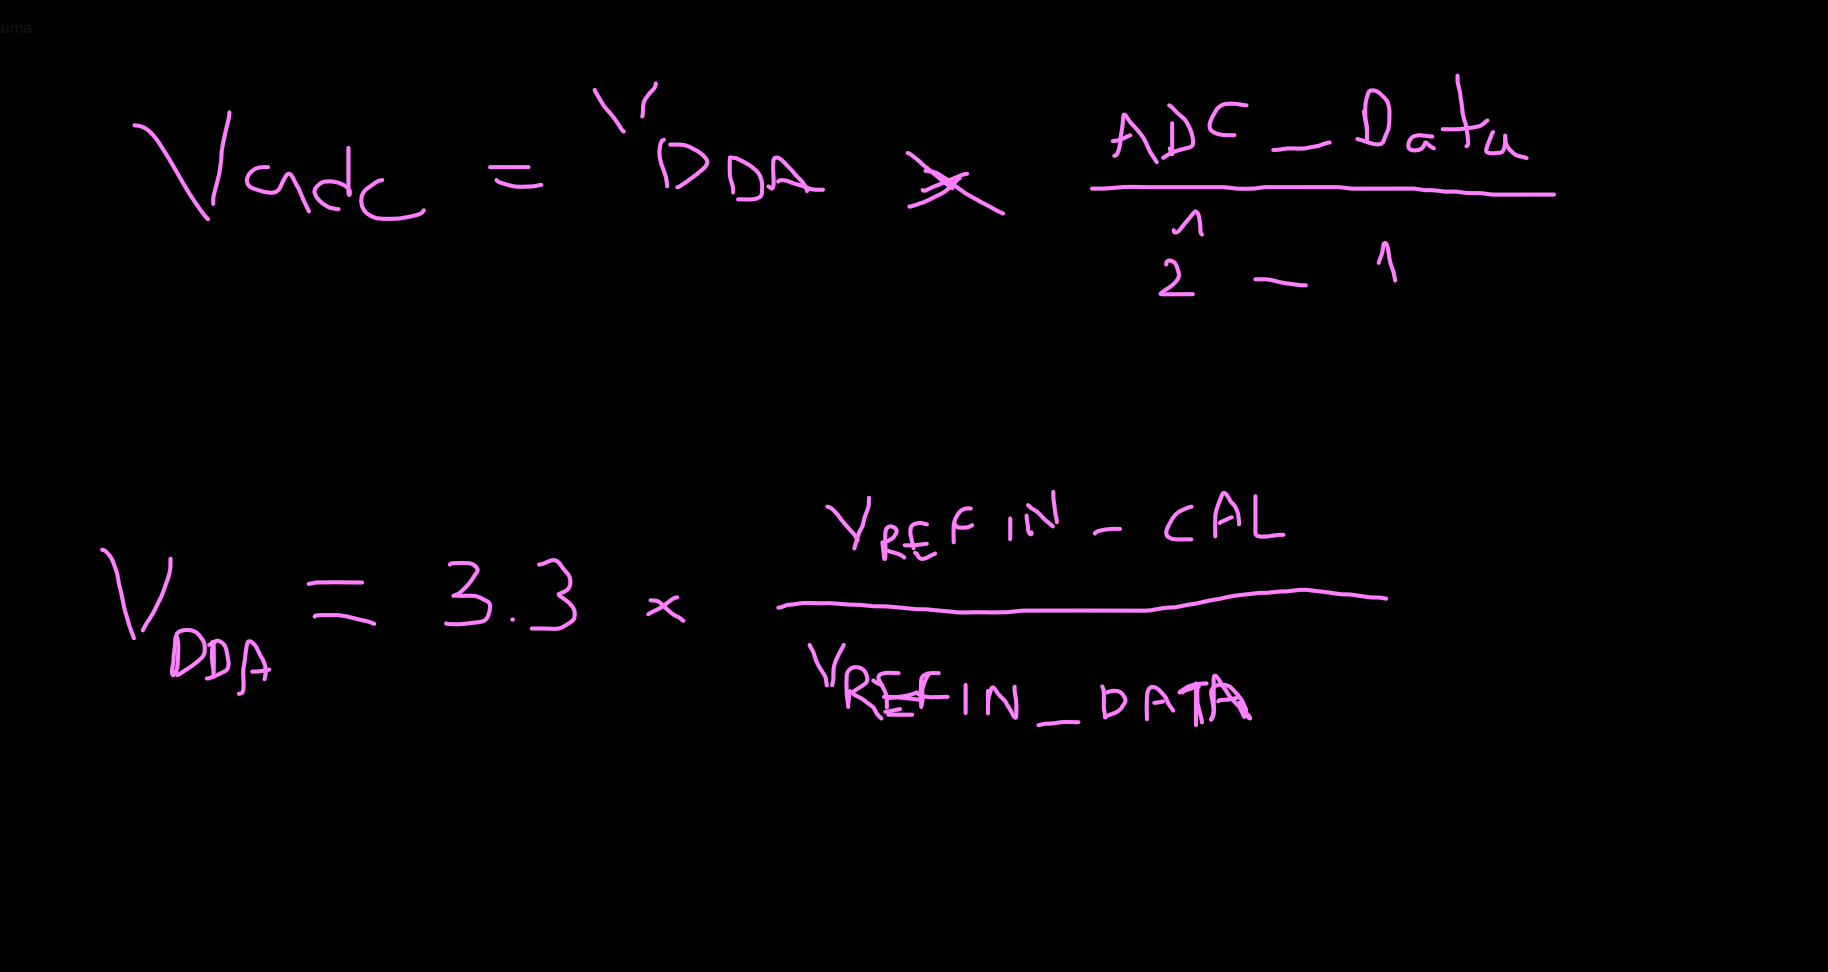 uma
Vadc = VDDA × ADC_Data / 2^n - 1
VDDA = 3.3 × VREFIN_CAL / VREFIN_DATA